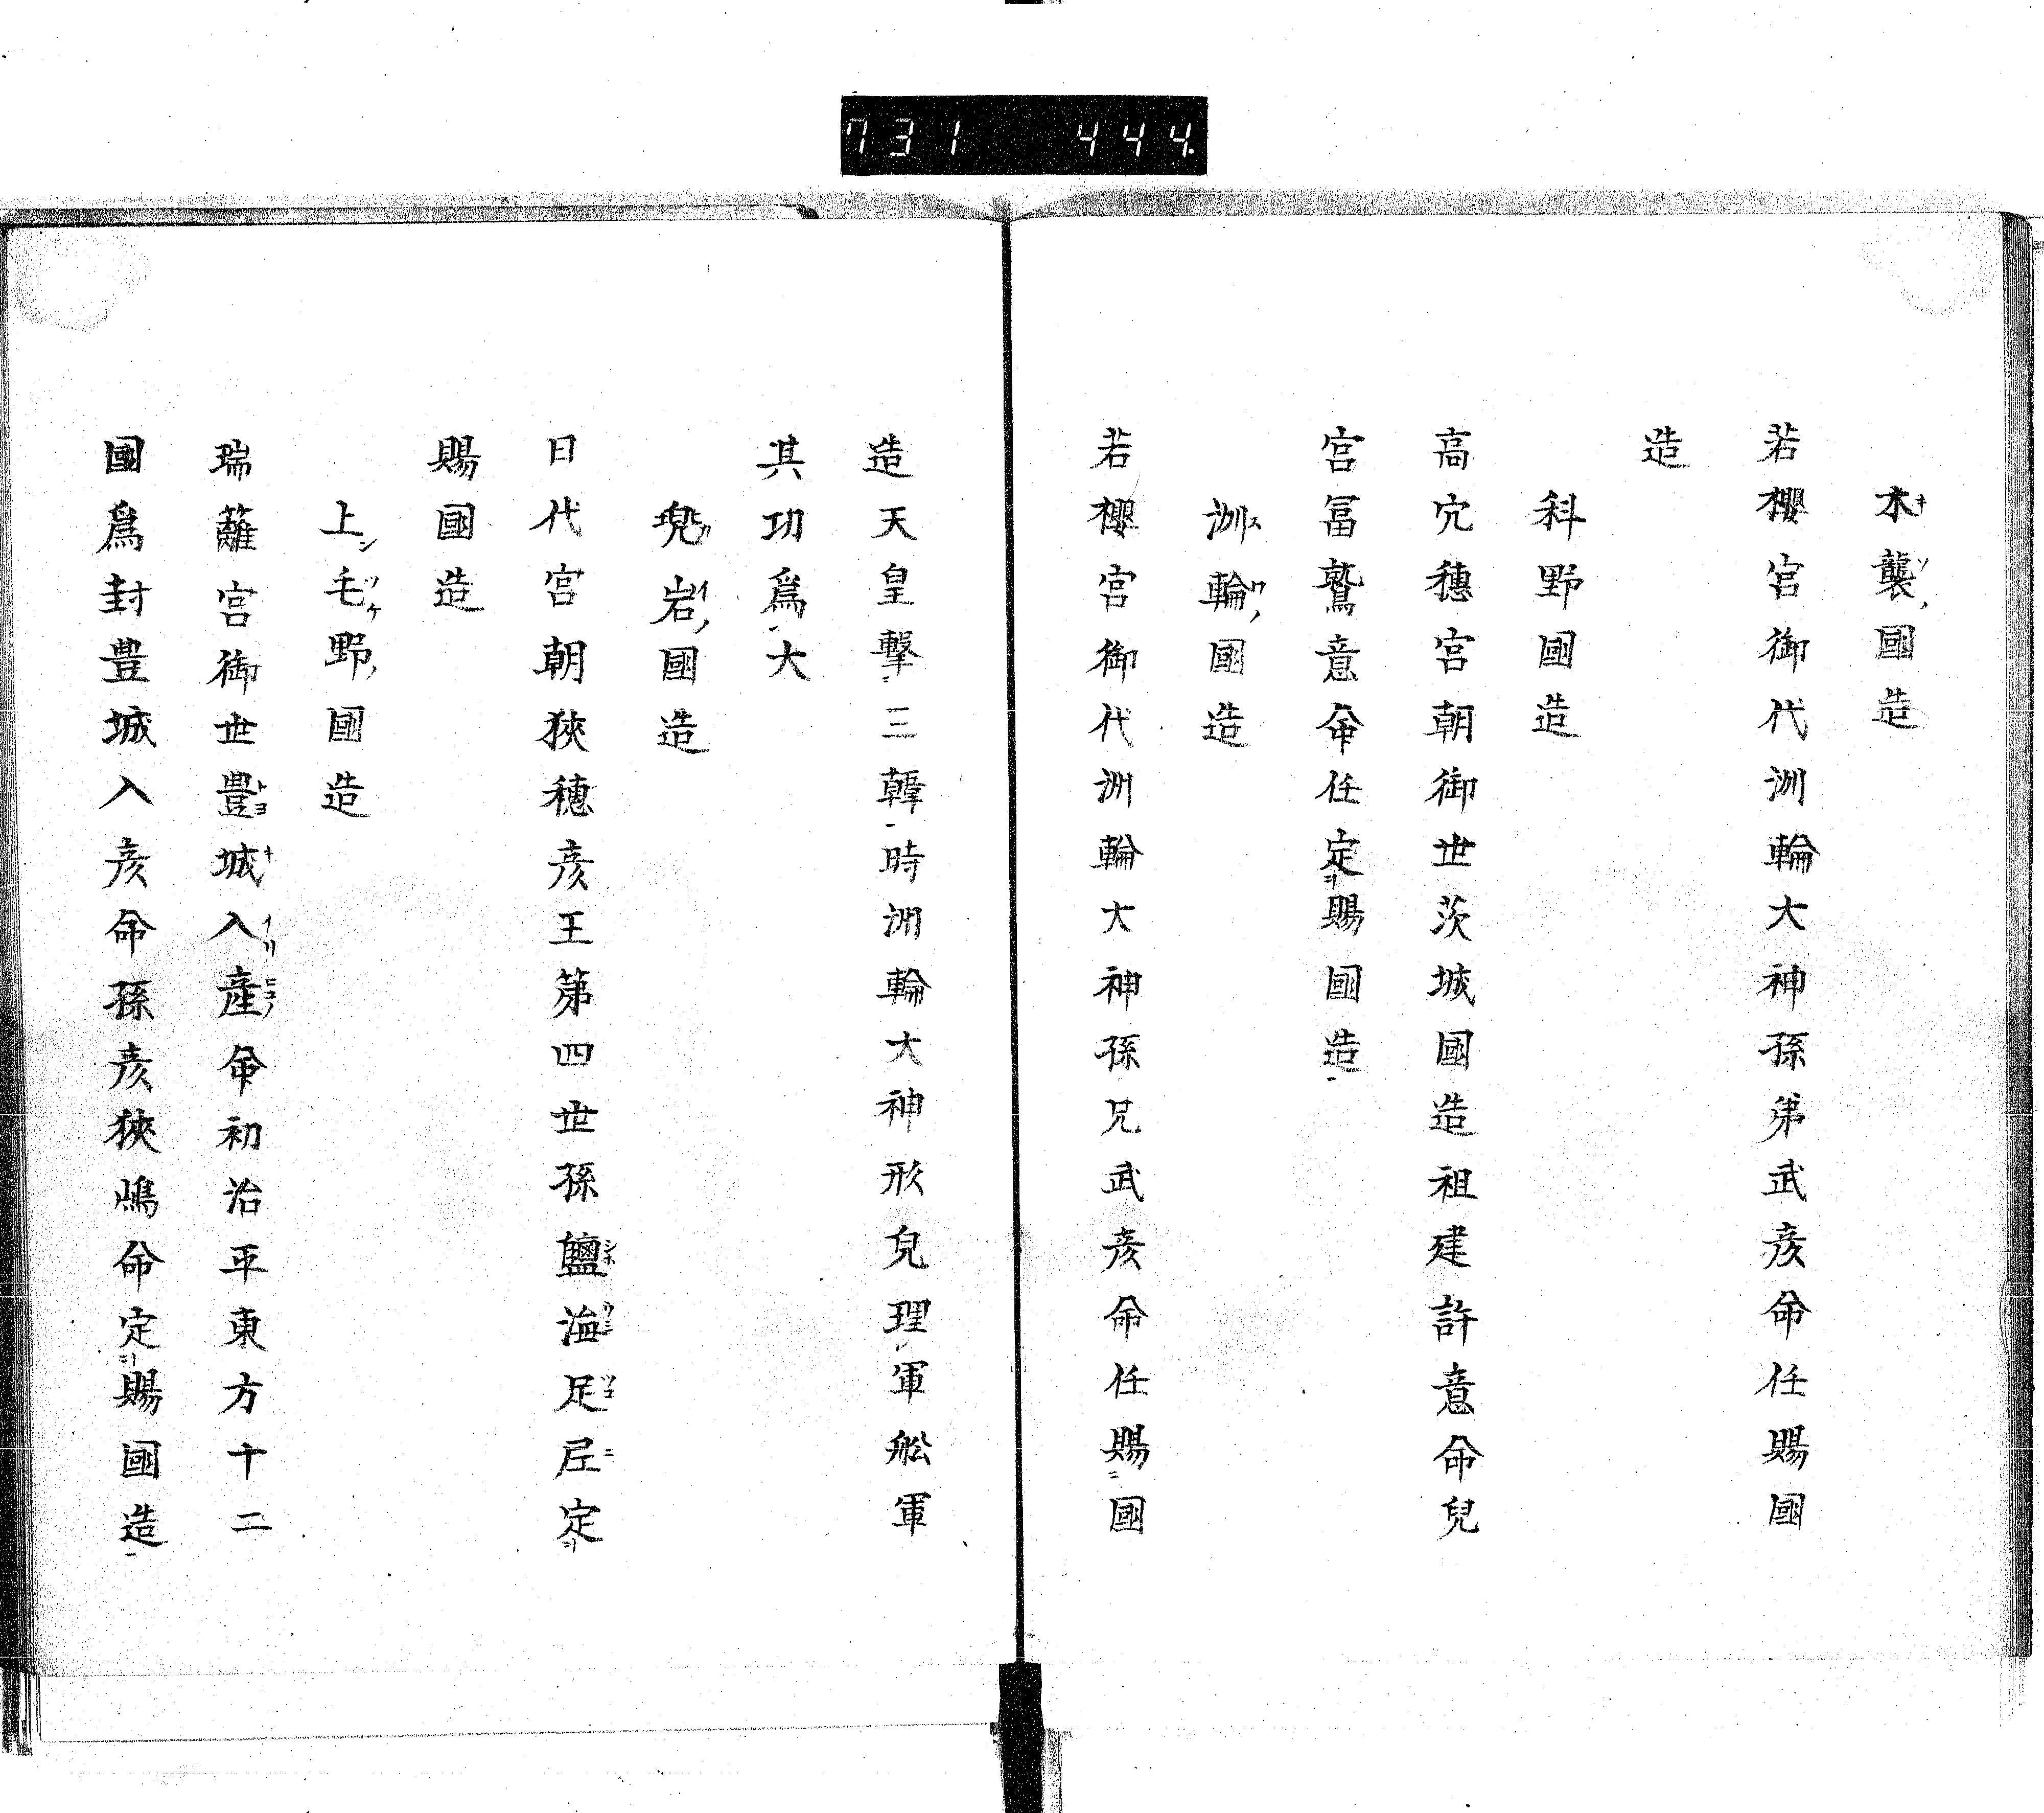 731 444
木襲國造
若櫻宮御代洲輪大神孫弟武彦命任賜國
造
科野國造
高穴穂宮朝御世茨城國造祖建許意命兒
宮冨鷲意命任定賜國造
洲輪國造
若櫻宮御代洲輪大神孫兄武彦命任賜國
造天皇撃三韓時洲輪大神形皃理軍舩軍
其功爲大
岩國造
日代宮朝狹穂彦王第四世孫鹽海足尼定
賜國造
上毛野國造
瑞籬宮御世豊城入産命初治平東方十二
國爲封豊城入彦命孫彦狹嶋命定賜國造